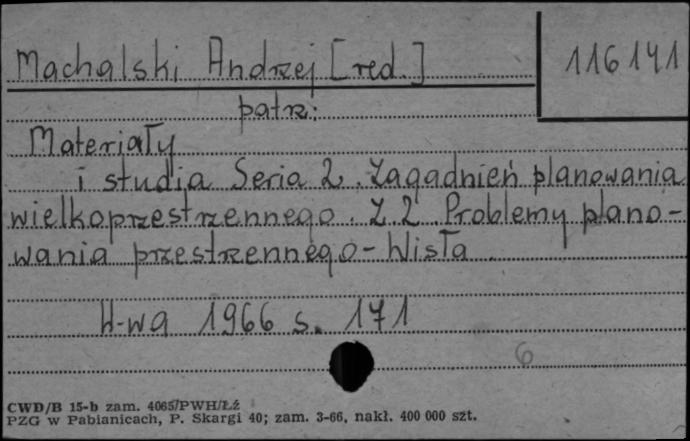 Machalski Andrzej [red.]
116141
patrz:
Materiały
i studia Seria 2. Zagadnień planowania
wielkoprzestrzennego. Z. 2 Problemy plano-
wania przestrzennego - Wisła.
W-wa 1966 s. 171
6
CWD/B 15-b zam. 4065/PWH/Łź
PZG w Pabianicach, P. Skargi 40; zam. 3-66, nakł. 400 000 szt.